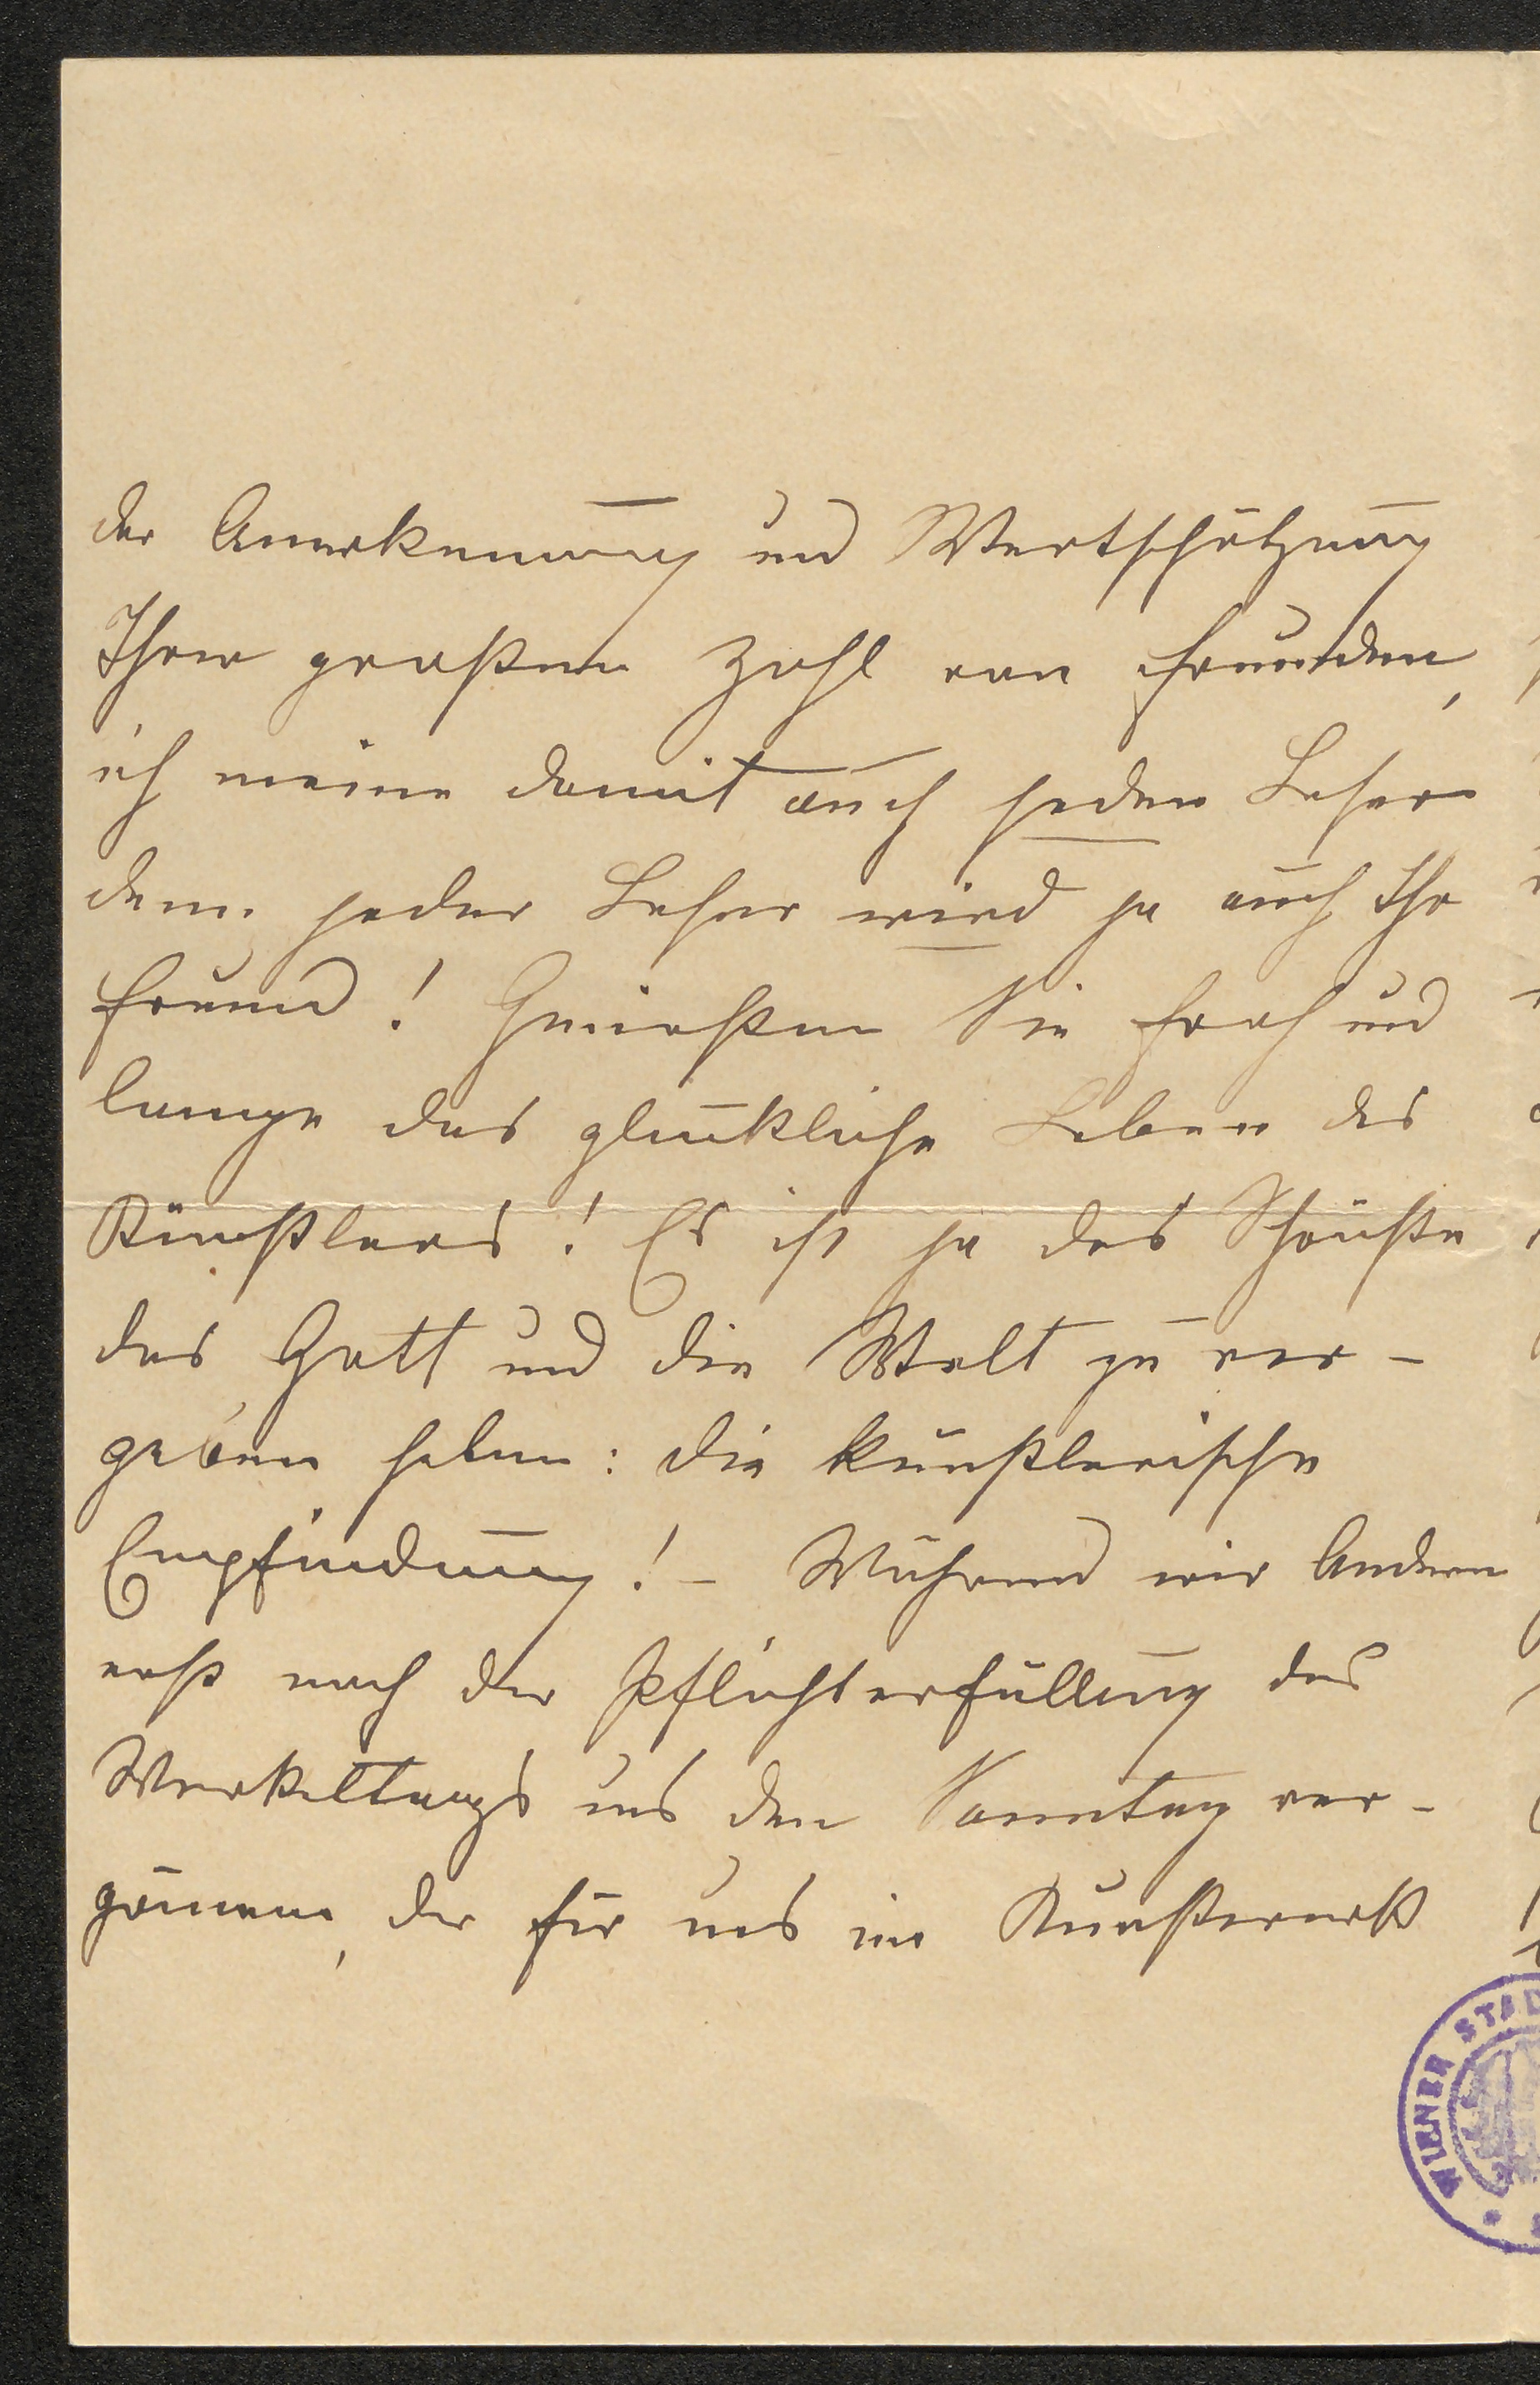 der Anerkennung und Wertschätzung
Ihrer großen Zahl von Freunden,
ich meine damit auch jeden Leser
denn jeder Leser wird ja auch Ihr
Freund! Genießen Sie froh und
lange das glückliche Leben des
Künstlers! Es ist ja das Schönste
das Gott und die Welt zu ver-
geben haben: die künstlerische
Empfindung! – Während wir Andern
erst nach der Pflichterfüllung des
Werkeltags uns den Sonntag ver-
gönnen, der für uns im Kunstwerk
WIENER STAD